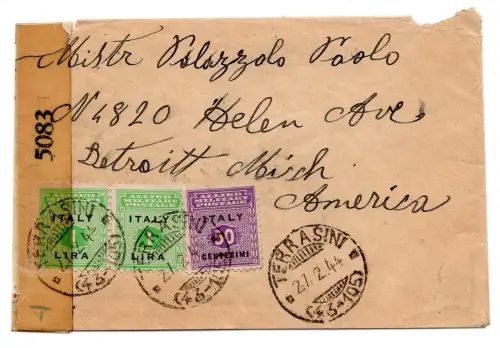 Mistr Palazzolo Paolo
N 4820 Helen Ave
Detroitt Mich.
America
5083
ALLIED MILITARY POSTAGE
ITALY
1
LIRA
ALLIED MILITARY POSTAGE
ITALY
1
LIRA
ALLIED MILITARY POSTAGE
ITALY
50
CENTESIMI
TERRASINI
2.2.44
(43-105)
TERRASINI
2.2.44
(43-105)
TERRASINI
2.2.44
(43-105)